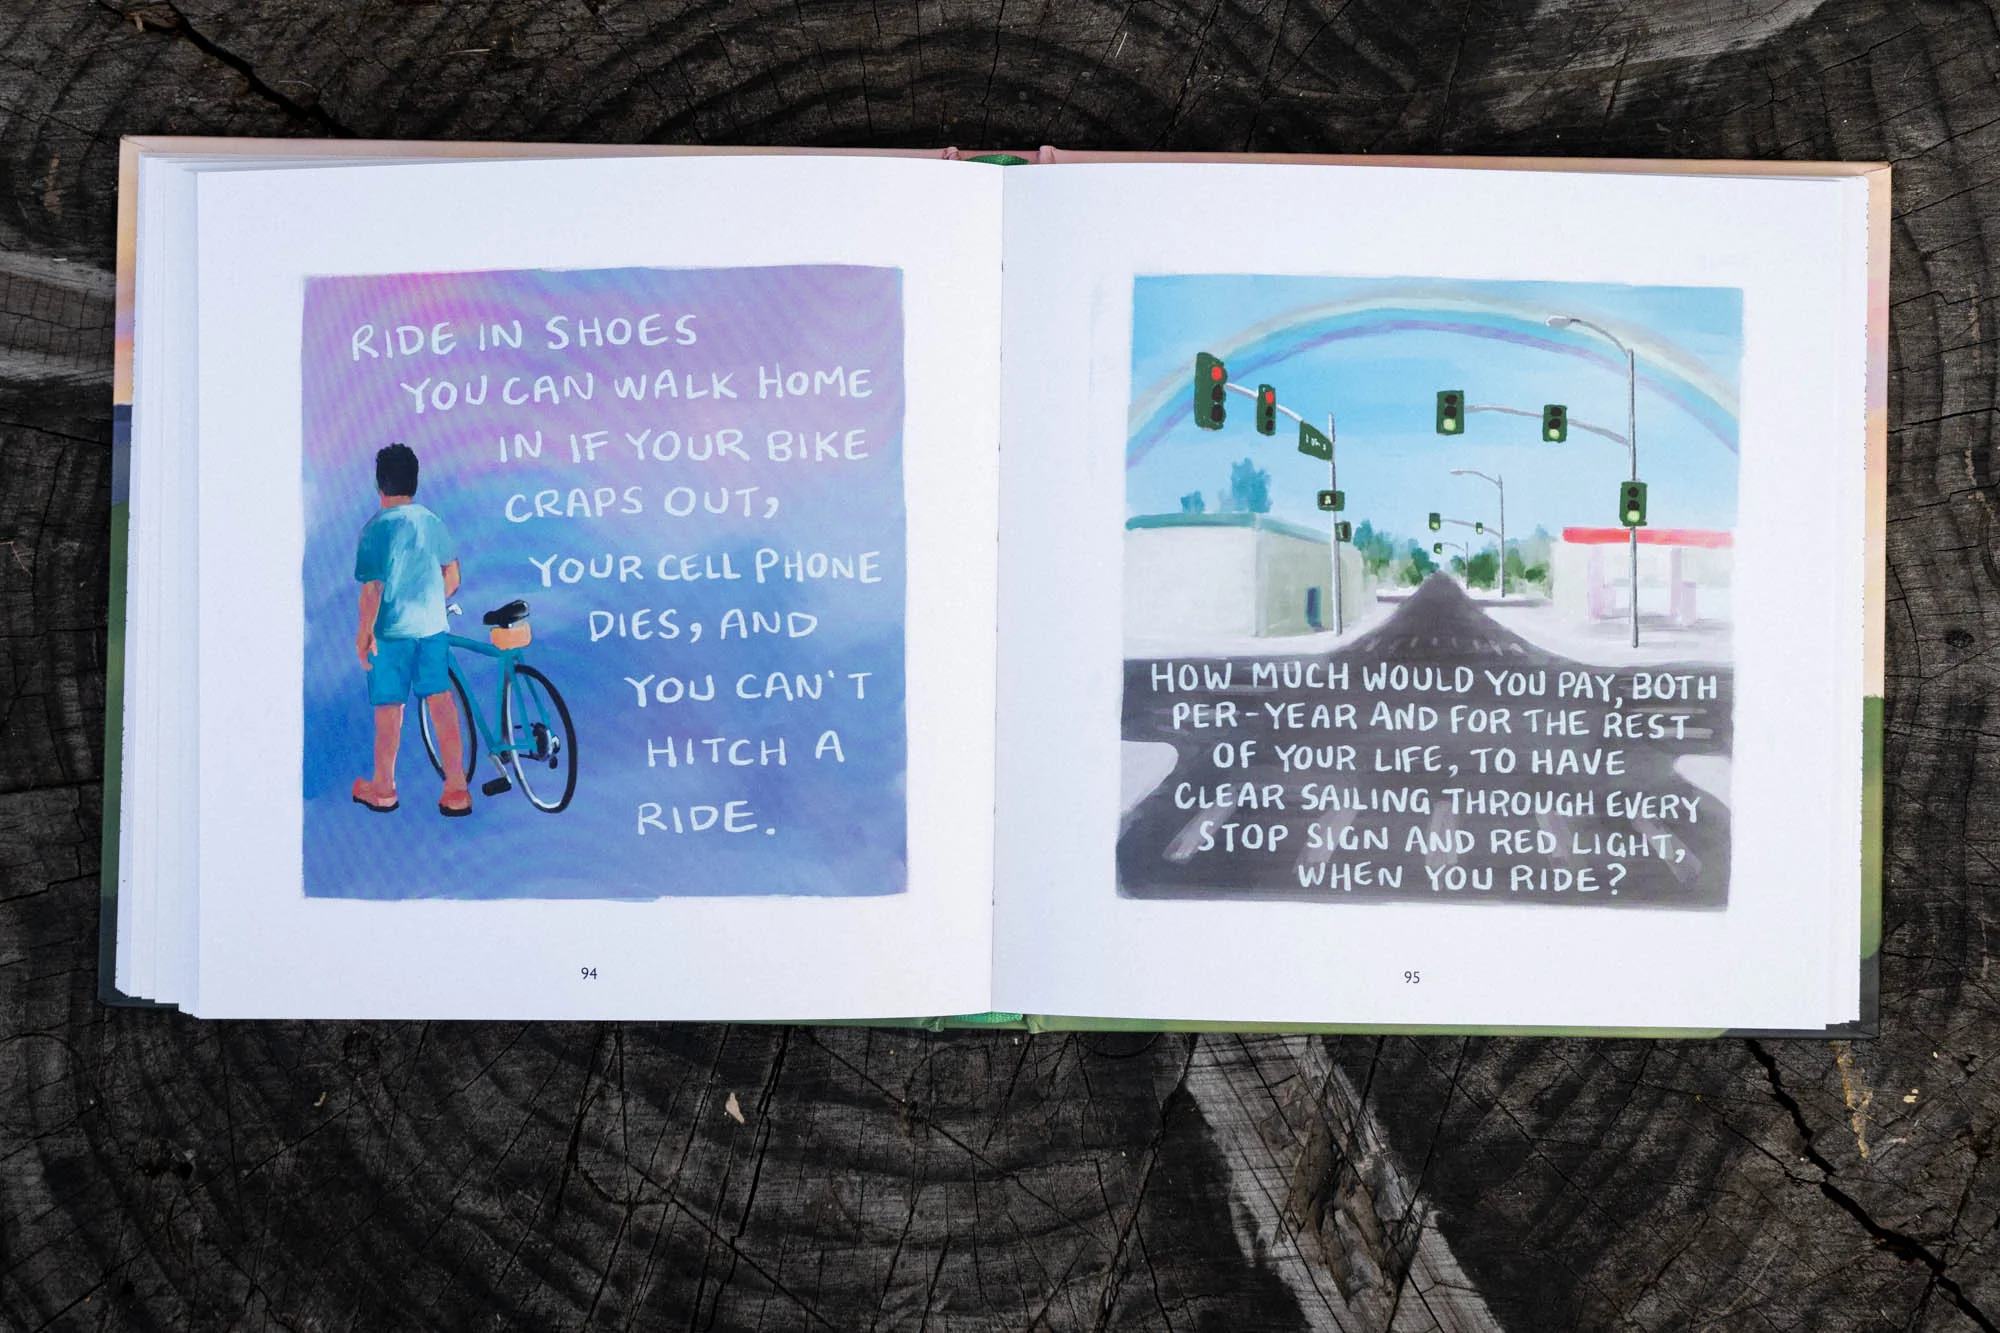 RIDE IN SHOES
YOU CAN WALK HOME
IN IF YOUR BIKE
CRAPS OUT,
YOUR CELL PHONE
DIES, AND
YOU CAN'T
HITCH A
RIDE.
94
HOW MUCH WOULD YOU PAY, BOTH
PER-YEAR AND FOR THE REST
OF YOUR LIFE, TO HAVE
CLEAR SAILING THROUGH EVERY
STOP SIGN AND RED LIGHT,
WHEN YOU RIDE?
95